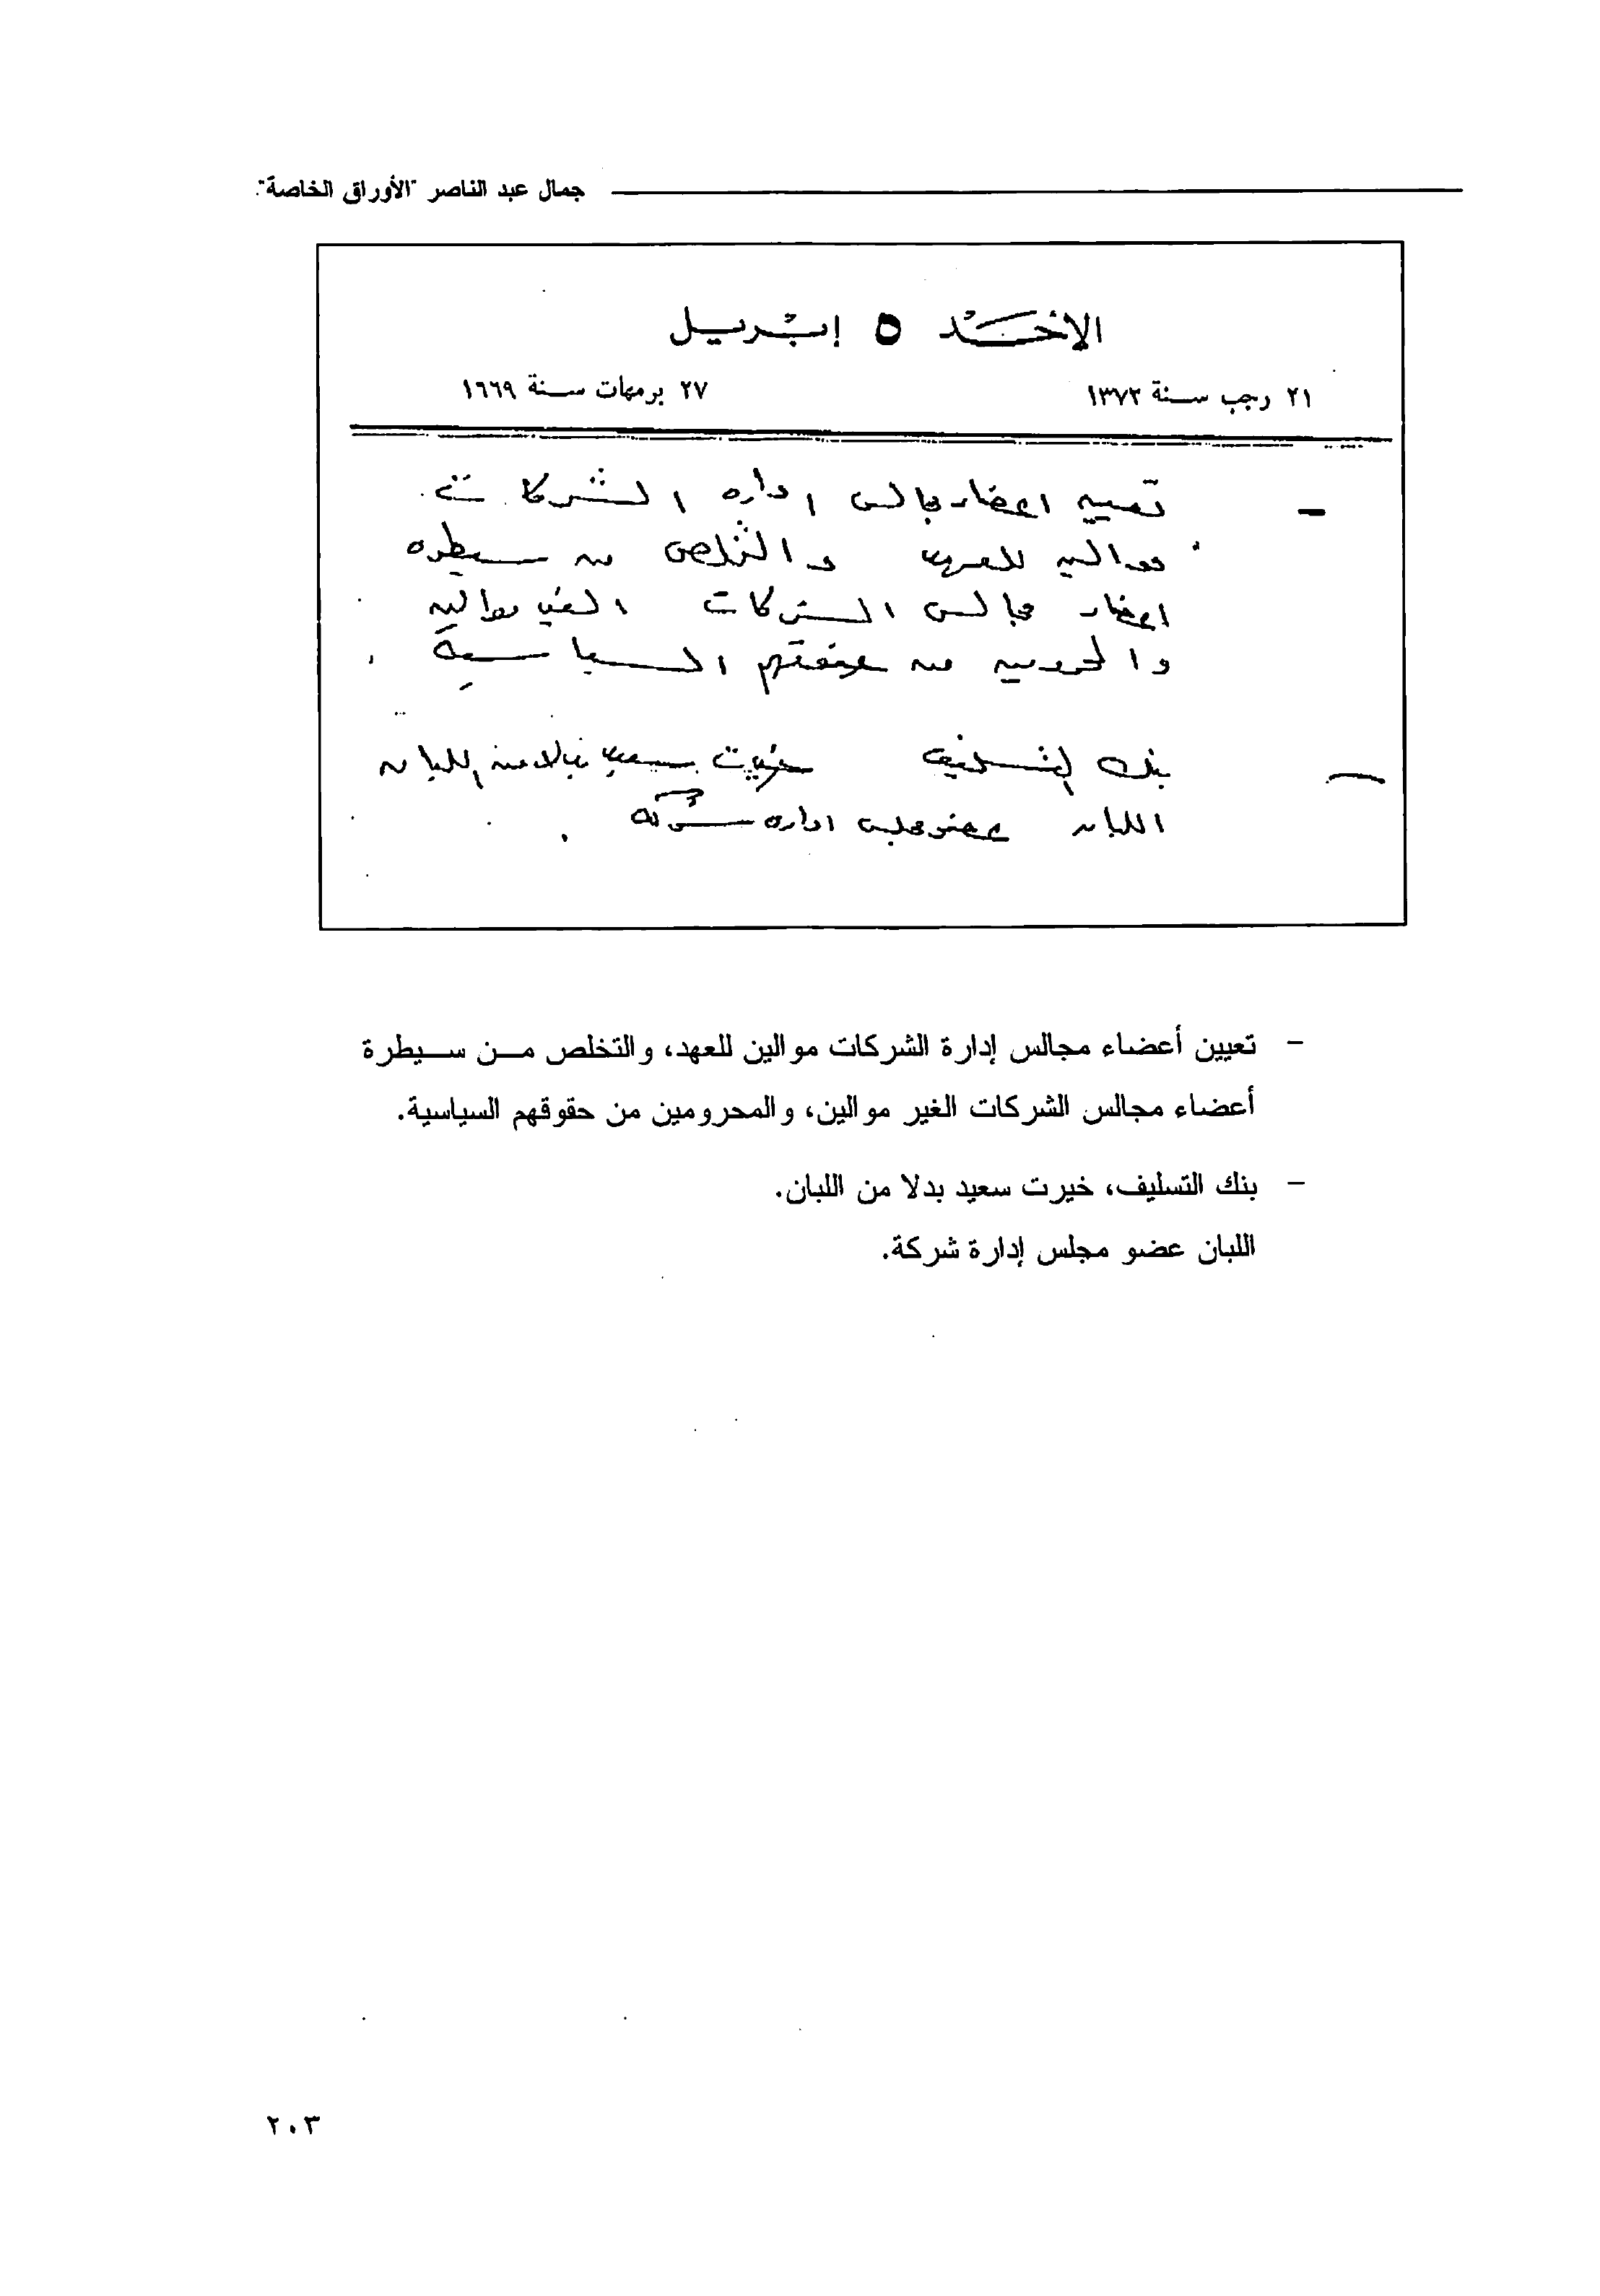 جمال عبد الناصر "الأوراق الخاصة"
الاحد ٥ إبريل
٢١ رجب سنة ١٣٧٢
٢٧ برمهات سنة ١٦٦٩
- تعيين اعضاء مجالس اداره الشركات
موالين للعهد والتخلص من سيطره
اعضاء مجالس الشركات الغير موالين
والمحرومين من حقوقهم السياسية .
- بنك التسليف خيرت سعيد بدلا من اللبان
اللبان عضو مجلس اداره شركه .
- تعيين أعضاء مجالس إدارة الشركات موالين للعهد، والتخلص من سيطرة
أعضاء مجالس الشركات الغير موالين، والمحرومين من حقوقهم السياسية.
- بنك التسليف، خيرت سعيد بدلا من اللبان.
اللبان عضو مجلس إدارة شركة.
٢٠٣